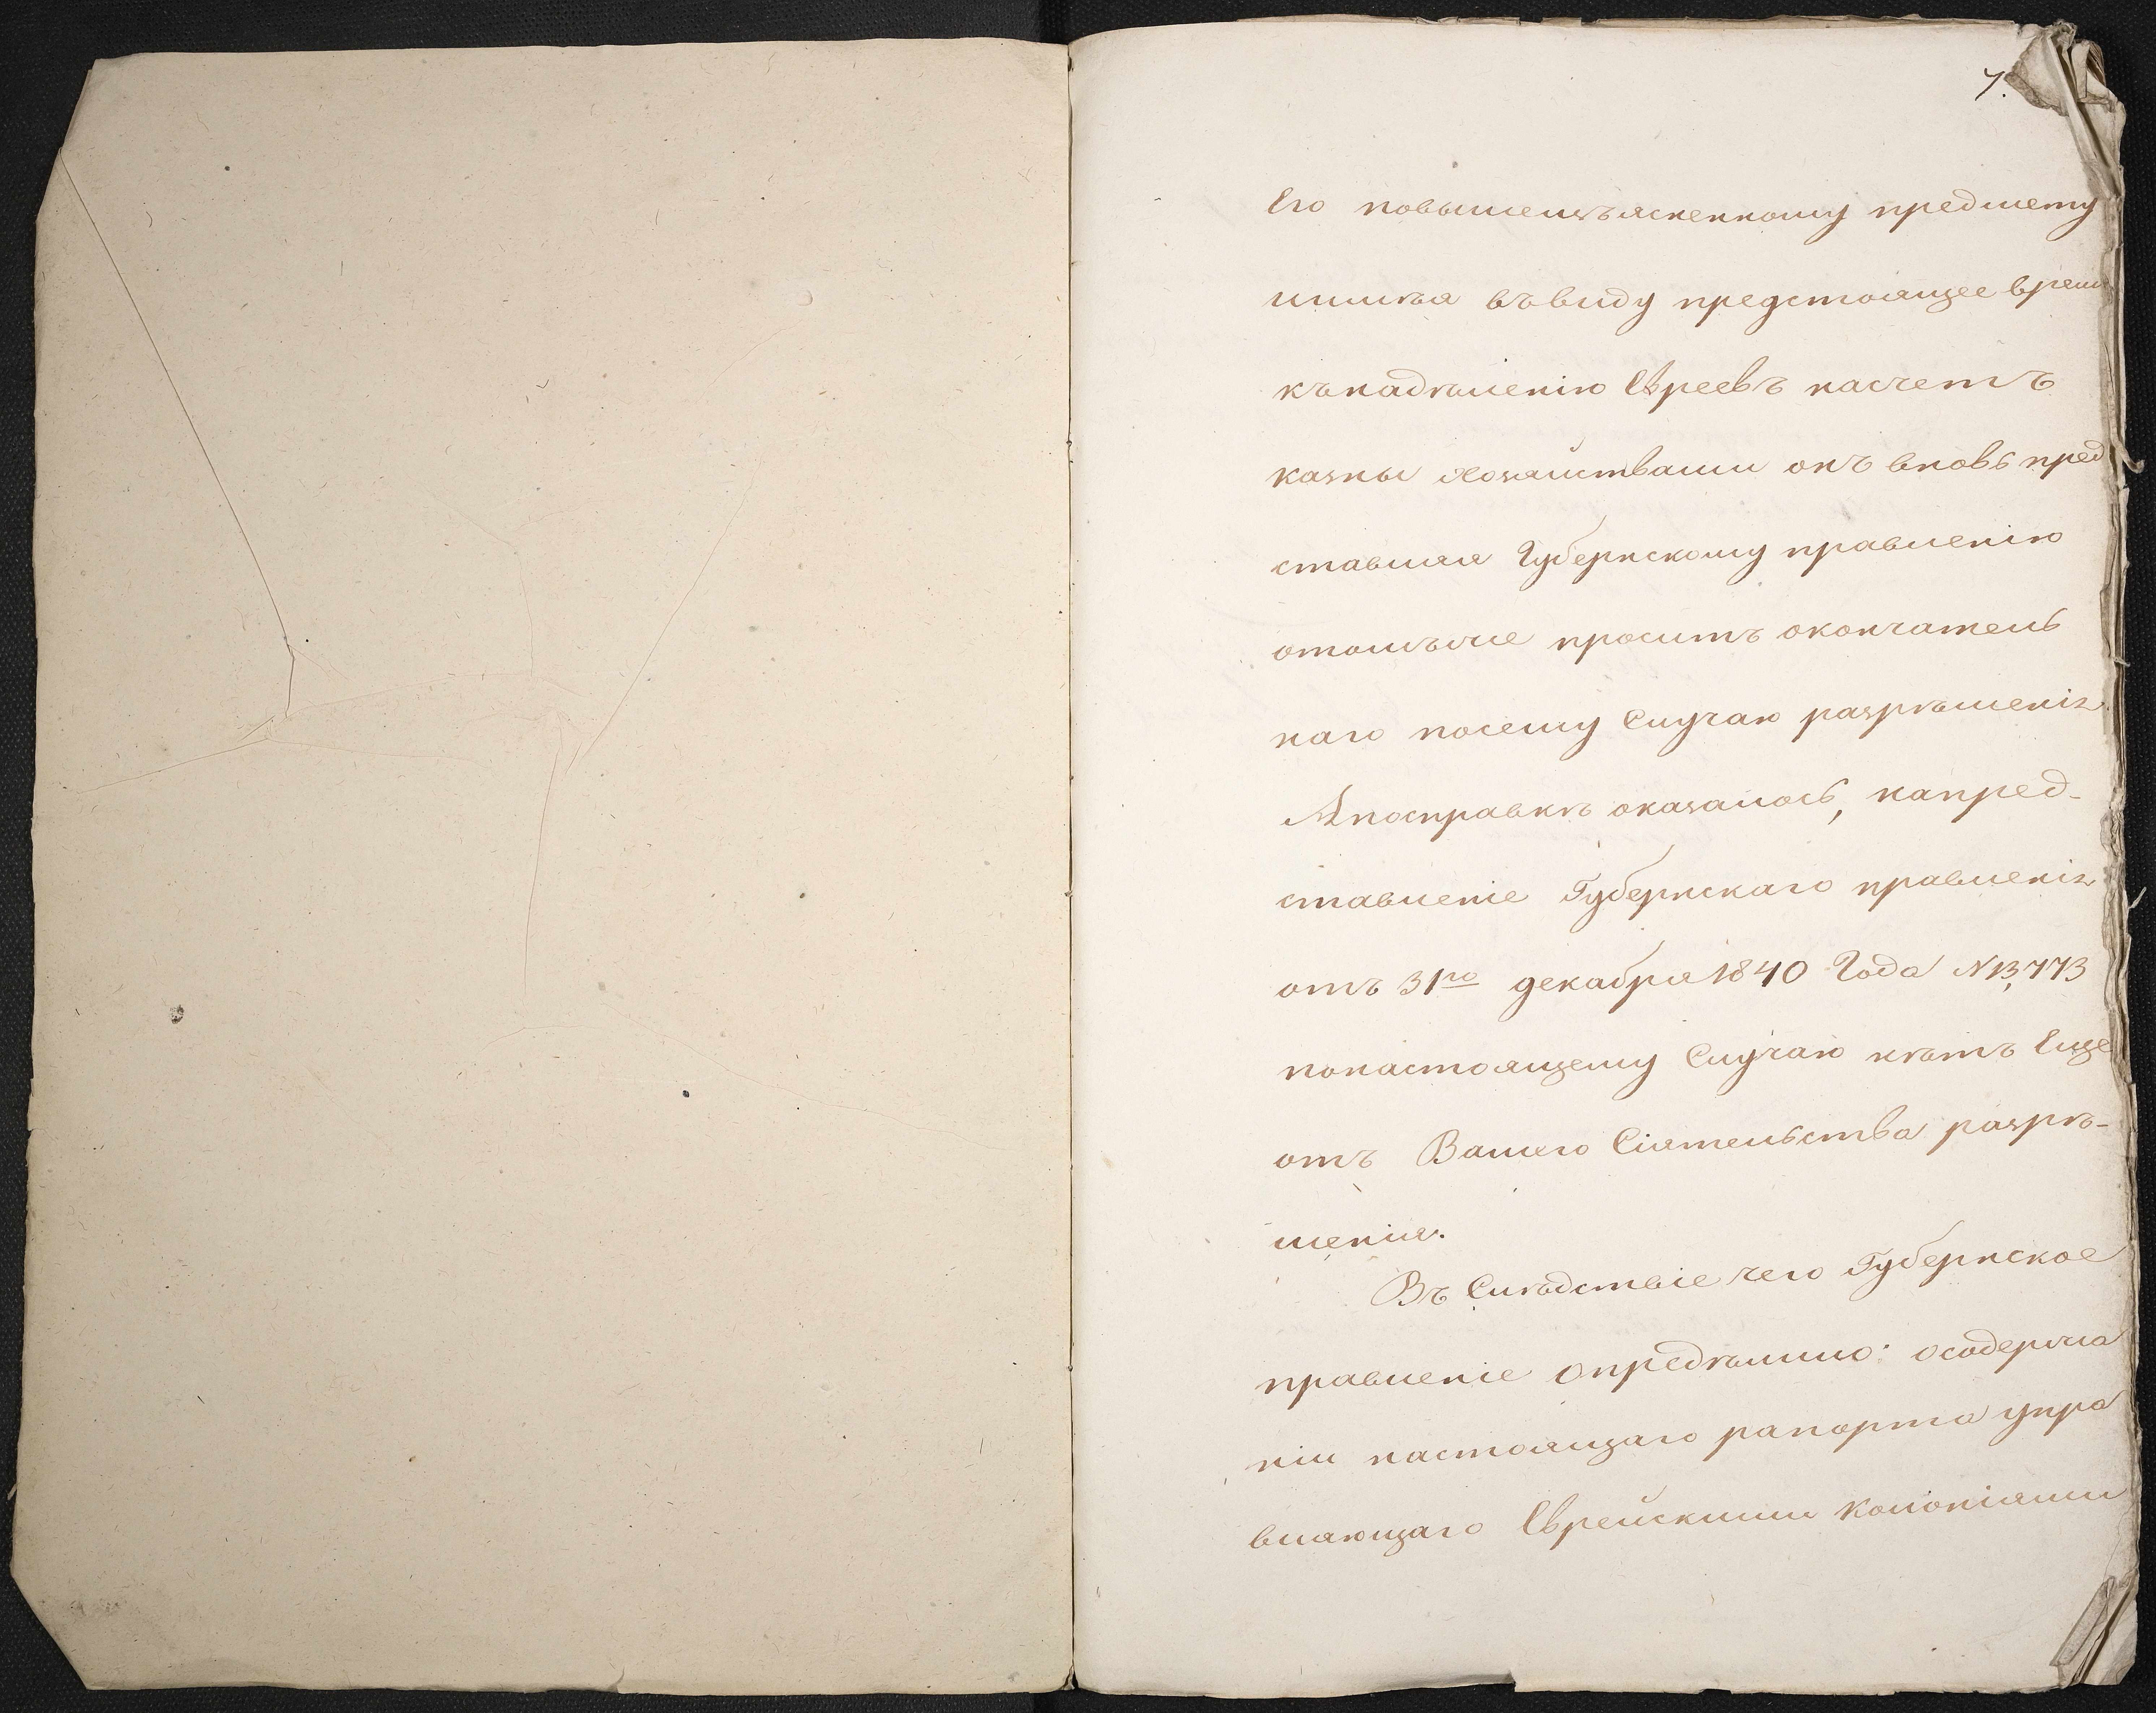 7.
Его повышеизъясненному предмету
имѣя въвиду предстоящее время
къ надѣленію Евреевъ насчетъ
казны хозяйствами онъ вновь пред
ставляя Губернскому правленію
отомъ же проситъ окончатель
наго посему Случаю разрѣшенія
А посправкѣ оказалось, напред-
ставленіе Губернскаго правленія
отъ 31го декабря 1840 Года N 13,773
понастоящему Случаю нѣтъ Еще
отъ Вашего Сіятельства разрѣ-
шенія.
Въ Слѣдствіе чего Губернское
правленіе опредѣлило: осодержа
ніи настоящаго рапорта упра
вляющаго Еврейскими колоніями